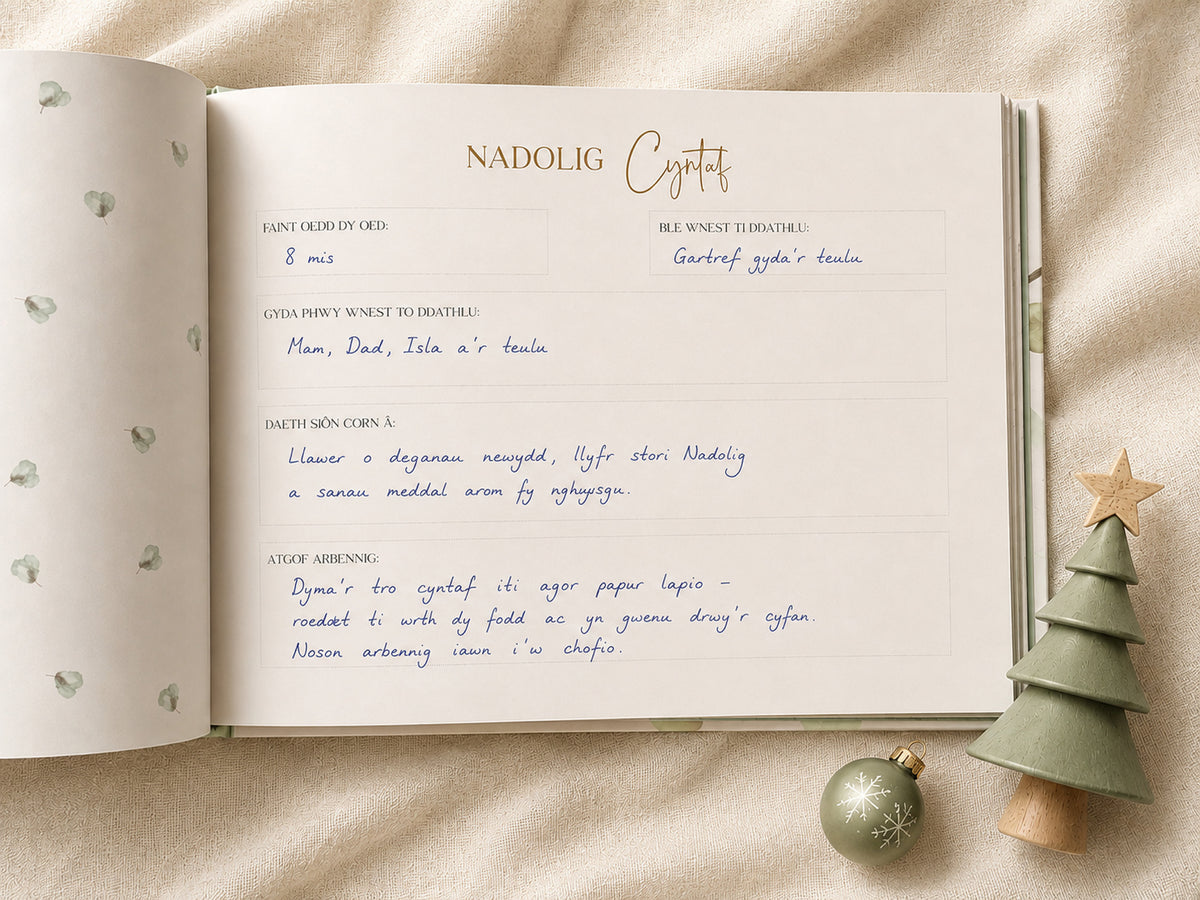 NADOLIG Cyntaf
FAINT OEDD DY OED:
8 mis
BLE WNEST TI DDATHLU:
Gartref gyda'r teulu
GYDA PHWY WNEST TO DDATHLU:
Mam, Dad, Isla a'r teulu
DAETH SIÔN CORN Â:
Llawer o deganau newydd, llyfr stori Nadolig
a sanau meddal arom fy
ATGOF ARBENNIG:
Dyma'r tro cyntaf iti agor papur lapio –
ti wrth dy fodd ac yn gwenu drwy'r cyfan.
Noson arbennig iawn i'w chofio.